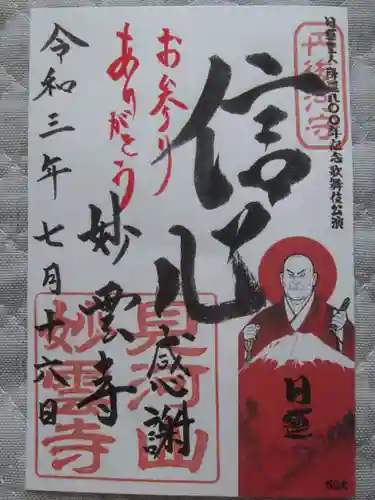 日蓮聖人降誕八〇〇年記念歌舞伎公演
信心
感謝
お参り
ありがとう
妙雲寺
令和三年七月十六日
日蓮
妙雲寺